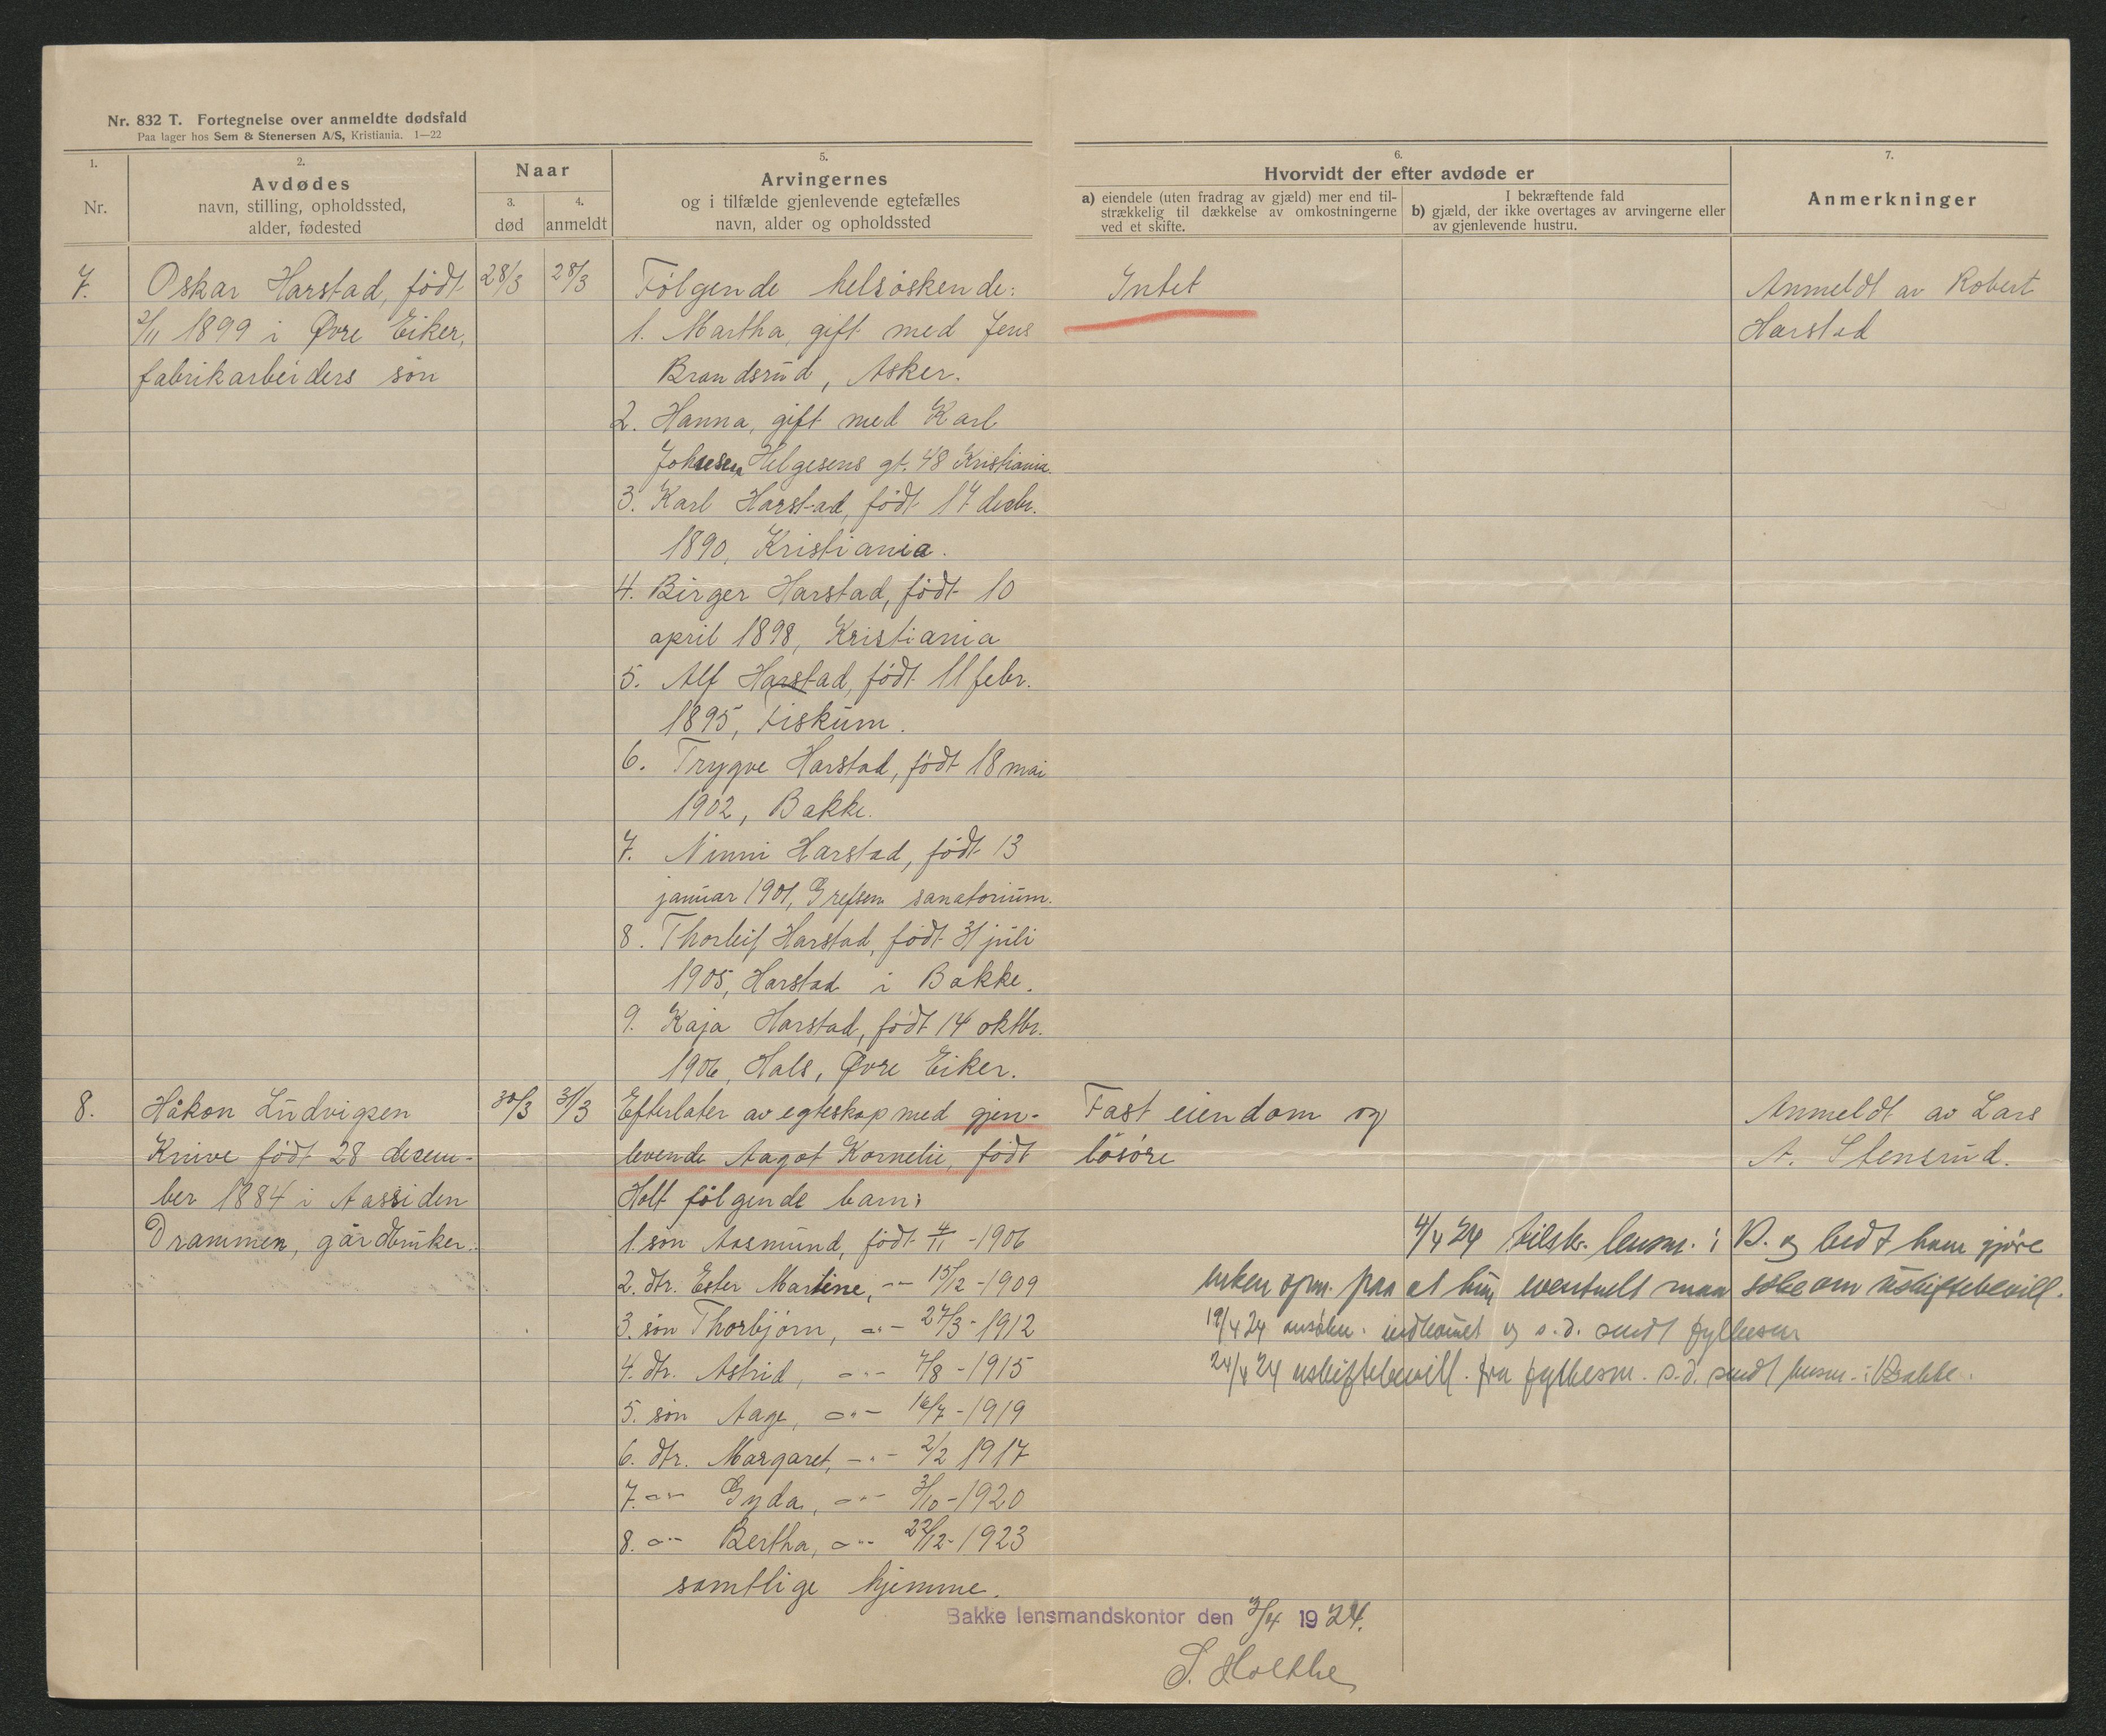 Nr. 832 T. Fortegnelse over anmeldte dødsfald
Paa lager hos Sem & Stenersen A/S, Kristiania. 1—22
1.
Nr.
2.
Avdødes
navn, stilling, opholdssted,
alder, fødested
Naar
3.
død
4.
anmeldt
5.
Arvingernes
og i tilfælde gjenlevende egtefælles
navn, alder og opholdssted
6.
Hvorvidt der efter avdøde er
a) eiendele (uten fradrag av gjæld) mer end til-
strækkelig til dækkelse av omkostningerne
ved et skifte.
I bekræftende fald
b) gjæld, der ikke overtages av arvingerne eller
av gjenlevende hustru.
7.
Anmerkninger
7.
Oskar Harstad, født
2/11 1899 i Øvre Eiker,
fabrikarbeiders søn
28/3
28/3
Følgende helsøskende:
1. Martha, gift med Jens
Brandsrud, Asker.
2. Hanna, gift med Karl
Johnesen Helgesens gt. 48 Kristiania.
3. Karl Harstad, født 17 decbr.
1890, Kristiania.
4. Birger Harstad, født 10
april 1898, Kristiania
5. Alf Harstad, født 11 febr.
1895, Fiskum.
6. Trygve Harstad, født 18 mai
1902, Bakke.
7. Ninni Harstad, født 13
januar 1901, Grefsen sanatorium.
8. Thorleif Harstad, født 31 juli
1905, Harstad i Bakke.
9. Kaja Harstad, født 14 oktbr.
1906, Hals, Øvre Eiker.
Intet
Anmeldt av Robert
Harstad
8.
Håkon Ludvigsen
Knive født 28 decem-
ber 1884 i Aassiden
Drammen, gårdbruker.
30/3
31/3
Efterlater av egteskap med gjen-
levende Aagot Kornelie, født
Holt følgende barn:
1. søn Aasmund, født 4/11 - 1906
2. dtr. Ester Martine, -"- 15/12 - 1909
3. søn Thorbjørn, -"- 27/3 - 1912
4. dtr. Astrid, -"- 7/8 - 1915
5. søn Aage, -"- 16/7 - 1919
6. dtr. Margaret, -"- 2/2 1917
7. -"- Gyda, -"- 3/10 - 1920
8. -"- Bertha, -"- 22/12 - 1923
samtlige hjemme.
Fast eiendom og
løsøre
Anmeldt av Lars
A. Stensrud.
4/4 24 tilskr. lensm. i B. og bedt ham gjøre
enken opm. paa at hun eventuelt maa søke om uskiftebevill.
19/4 24 ansøkn. indkommet og s.d. sendt fylkesm
24/4 24 uskiftebevill. fra fylkesm. s.d. sendt lensm. i Bakke.
Bakke lensmandskontor den 3/4 1924.
S. Holthe